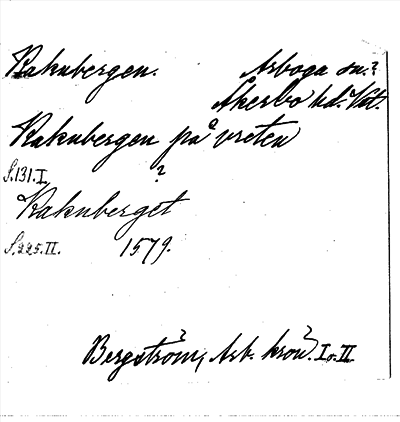 Kaknbergen. Arboga sn.?
Åkerbo hd. Vstm.
Kaknbergen på vreten
S.131.I. ?
Kaknberget
S.225.II. 1579.
Bergström, Arb. krön. I o. II